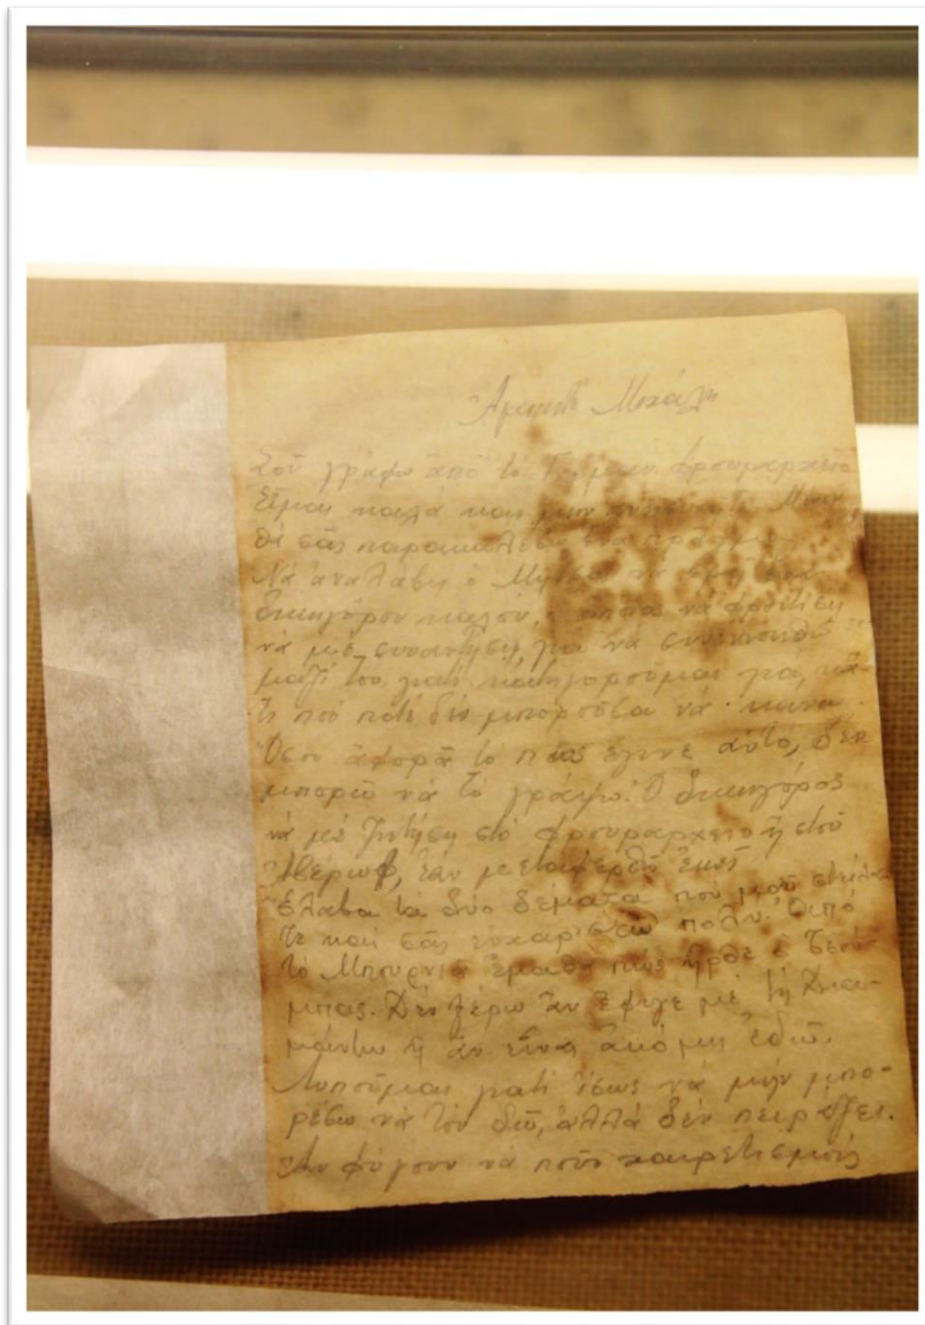 Ἀγαπητὲ Μιχάλη
Σοῦ γράφω ἀπὸ τὸ φρουραρχεῖο
Εἶμαι καλὰ καὶ μὴν
θὰ σᾶς παρακαλέσω
Νὰ ἀναλάβη ὁ
δικηγόρον καλόν, ὁ ὁποῖος νὰ φροντίση
νὰ μὲ συναντήση γιὰ νὰ συνεννοηθῶ
μαζί του γιατὶ κατηγοροῦμαι γιὰ κά-
τι ποὺ ποτὲ δὲν μποροῦσα νὰ κάνω.
Ὅσο ἀφορᾶ τὸ πῶς ἔγινε αὐτό, δὲν
μπορῶ νὰ τὸ γράψω. Ὁ δικηγόρος
νὰ μὲ ζητήση στὸ φρουραρχεῖο ἢ στοῦ
Ἀβέρωφ, ἐὰν μεταφερθῶ ἐκεῖ
Ἔλαβα τὰ δύο δέματα ποὺ μοῦ στείλα-
τε καὶ σᾶς εὐχαριστῶ πολύ. Ἀπὸ
τὸ Μπουρνιᾶ ἔμαθα πὼς ἦρθε ὁ
μπας. Δὲν ξέρω ἂν ἔφυγε μὲ τὴ Δια-
μάντω ἢ ἂν εἶναι ἀκόμη ἐδῶ.
Λυποῦμαι γιατὶ ἴσως νὰ μὴν μπο-
ρέσω νὰ τὸν δῶ, ἀλλὰ δὲν πειράζει.
Ἂν φύγουν νὰ ποῦν χαιρετισμοὺς